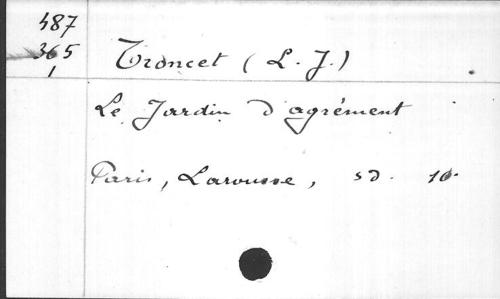 487
365
1
Troncet (L. J.)
Le Jardin d'agrément
Paris, Larousse, sd. 16.